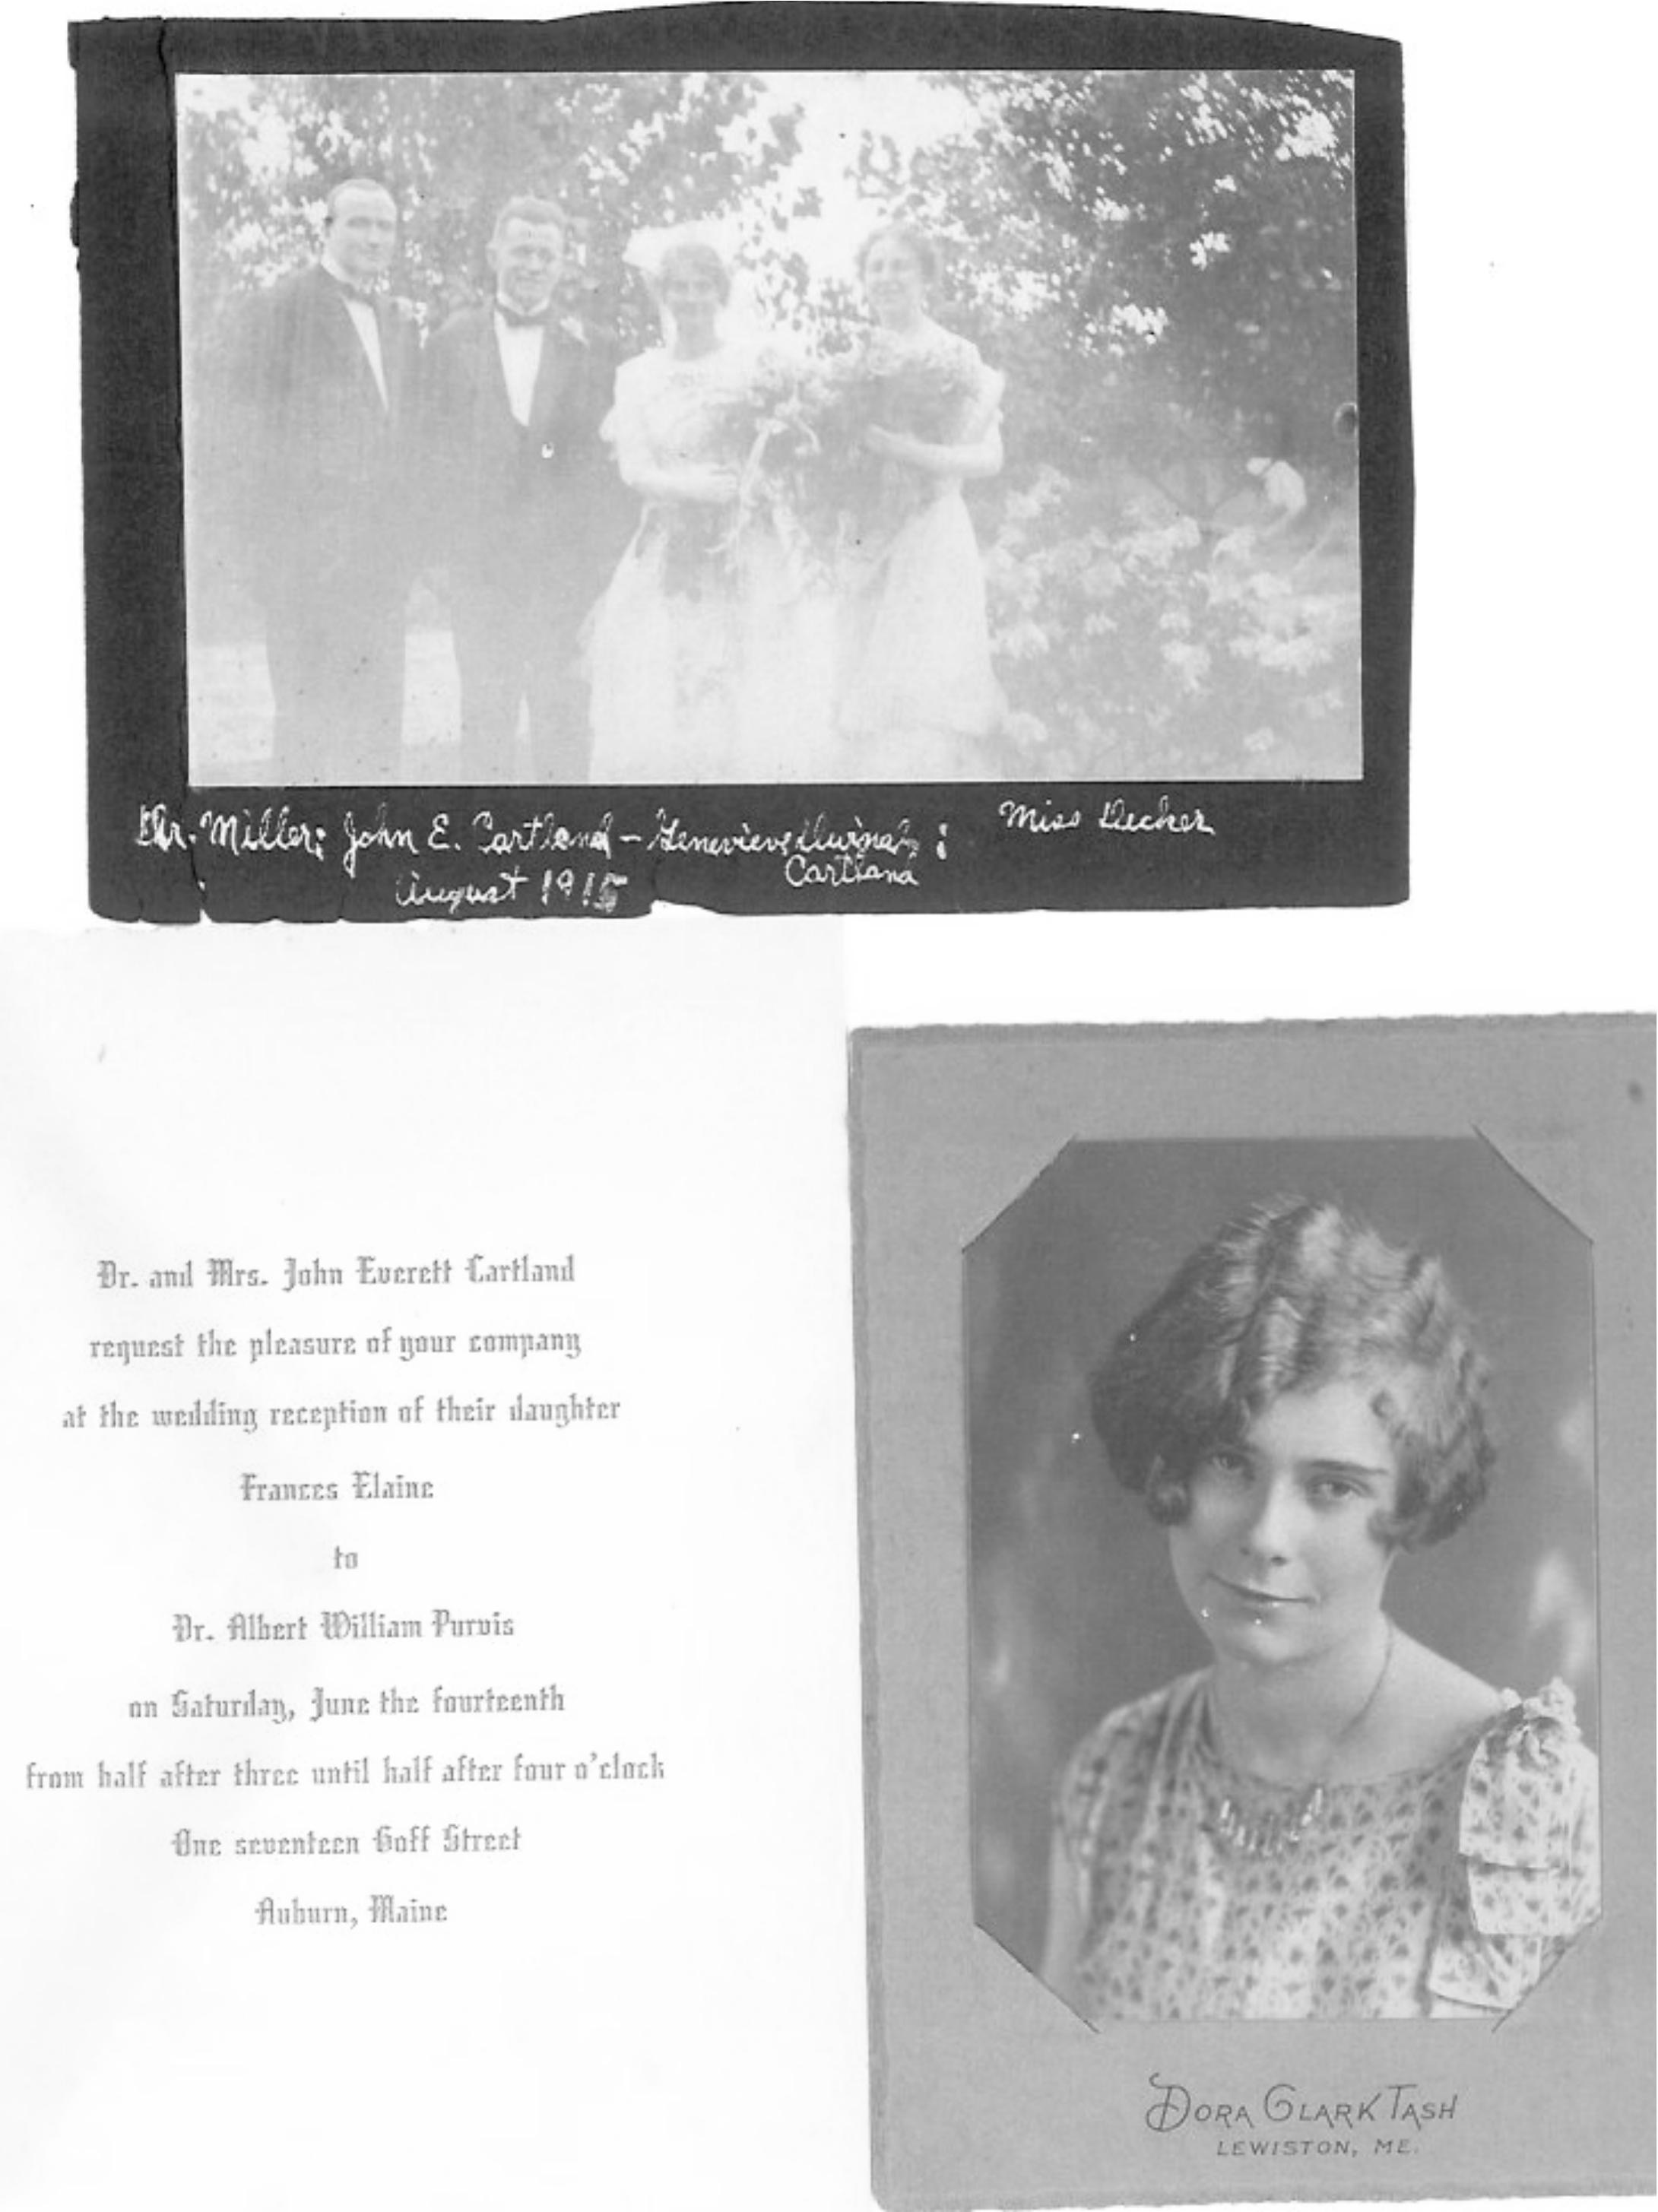 Dr. Miller; John E. Cartland - Genevieve Dwinal ; Miss Decker
Cartland
August 1915
Dr. and Mrs. John Everett Cartland
request the pleasure of your company
at the wedding reception of their daughter
Frances Elaine
to
Dr. Albert William Purvis
on Saturday, June the fourteenth
from half after three until half after four o'clock
One seventeen Goff Street
Auburn, Maine
DORA CLARK TASH
LEWISTON, ME.